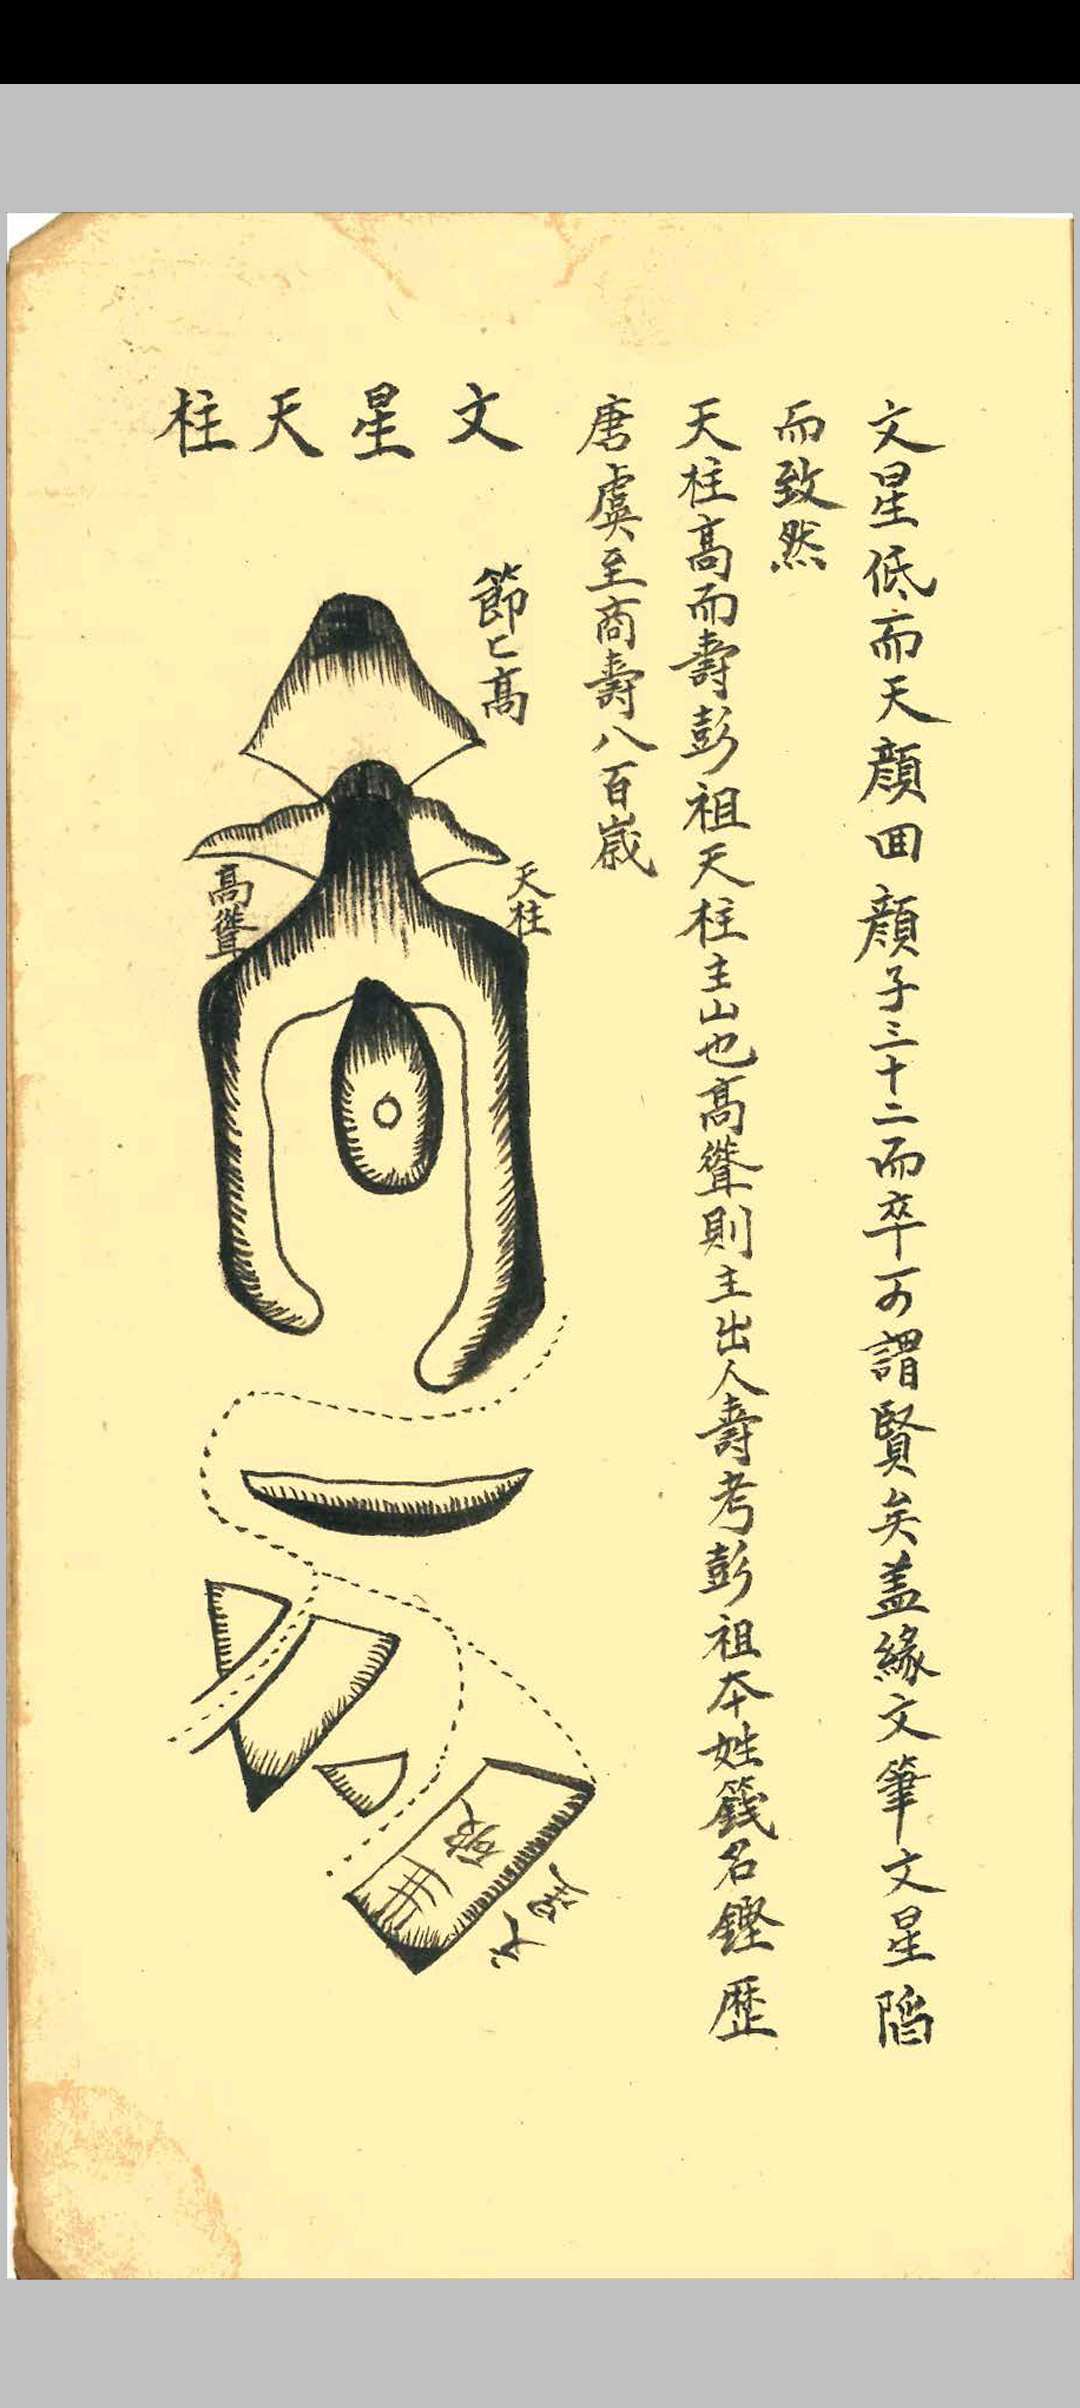 文星低而天顔回顔子三十二而卒可謂賢矣盖緣文筆文星陷
而致然
天柱高而壽彭祖天柱主山也高聳則主出人壽考彭祖本姓籛名鏗歷
唐虞至商壽八百歲
文星天柱
節匕高
天柱
高聳
文星